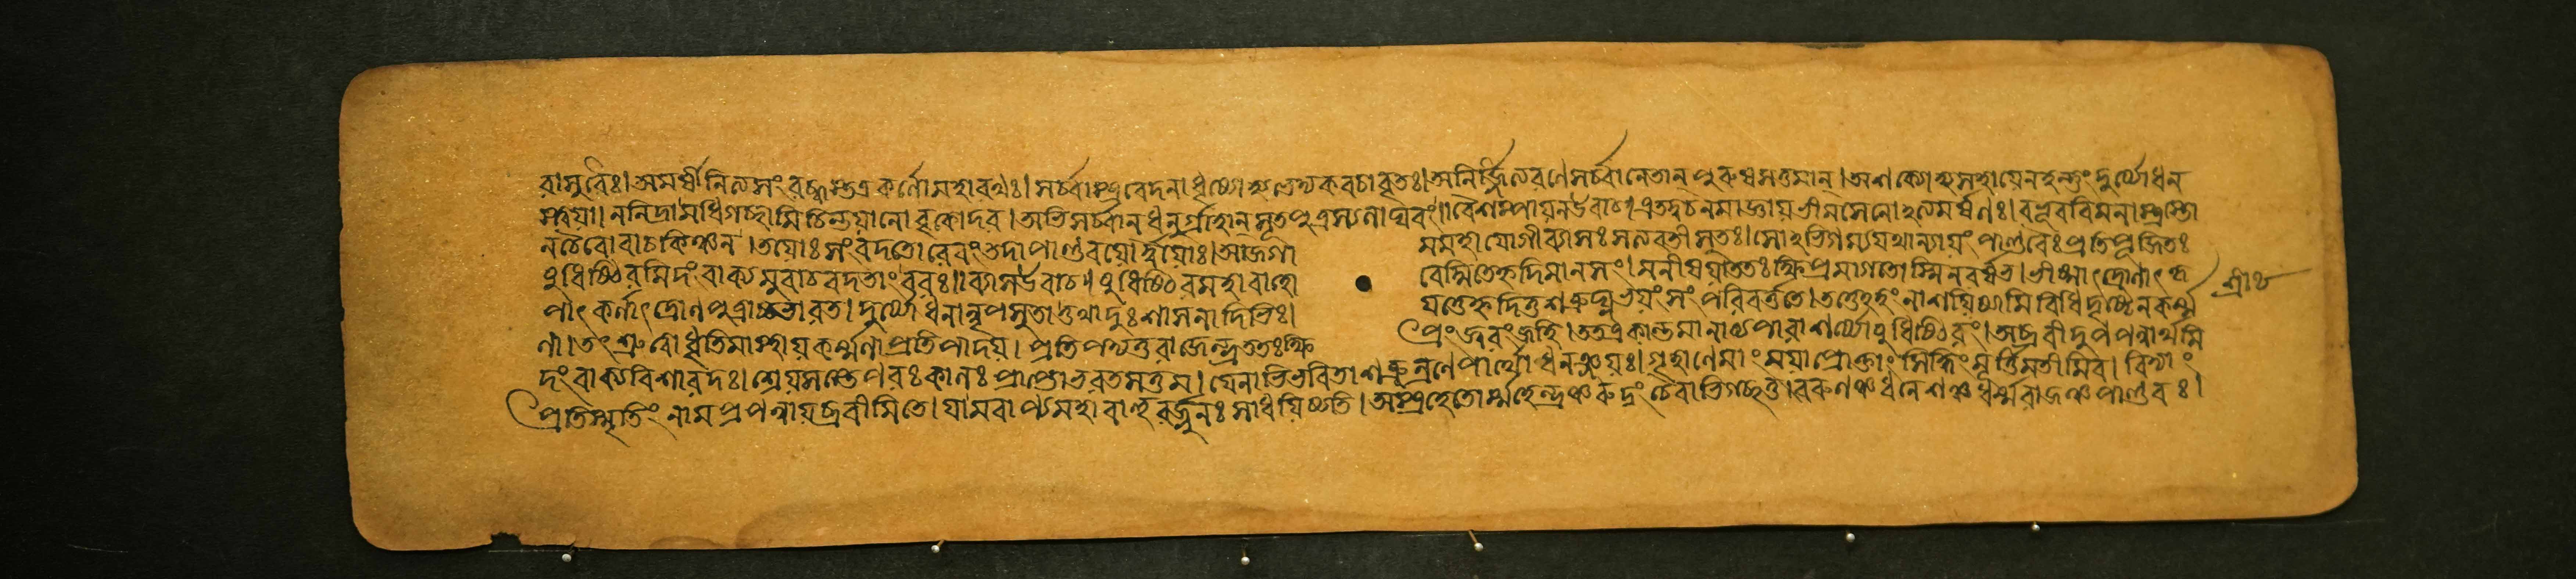 রাসুধিঃ। অমর্ষীনিত্যসংরব্ধস্তত্রকর্ণোমহারথঃ। সর্ব্বাস্ত্রবেদনাধৃষ্যোহ্যভেদ্যকবচাবৃতঃ। অনির্জ্জিত্যরণেসর্ব্বানেতান্ পুরুষসত্তমান্। অশক্যোহ্যসহায়েনহন্তুংদুর্য্যোধন
স্ত্বয়া। ননিদ্রামধিগচ্ছামিচিন্তয়ানোবৃকোদর। অতিসর্ব্বানধনুর্গ্রাহানসূতপুত্রস্যলাঘবং॥ বৈশম্পায়নউবাচ। এতদ্বচনমাজ্ঞায়ভীমসেনোঽত্যমর্ষণঃ। বভূববিমনাস্ত্রস্তো
নচৈবোবাচকিঞ্চন। তয়োঃসংবদতোরেবংতদাপাণ্ডবয়োর্দ্বয়োঃ। আজগা মমহাযোগীব্যাসঃসত্যবতীসুতঃ। সোঽভিগম্যযথান্যায়ংপাণ্ডবৈঃপ্রতিপূজিতঃ
যুধিষ্ঠিরমিদংবাক্যমুবাচবদতাংবরঃ॥ ব্যাসউবাচ। যুধিষ্ঠিরমহাবাহো বেদ্মিতেহৃদিমানসং। মনীষয়াততঃক্ষিপ্রমাগতোস্মিনরর্ষভ। ভীষ্মাৎদ্রোণাৎকৃ
পাৎকর্ণাৎদ্রোণপুত্রাচ্চভারত। দুর্য্যোধনান্নৃপসুতাত্তথাদুঃশাসনাদিভিঃ। যত্তেহৃদিতুশত্রুঘ্নভয়ংসংপরিবর্ত্ততে। তত্তেঽহংনাশয়িষ্যামিবিধিদৃষ্টেনকর্ম্ম
ণা। তৎশ্রুত্বোধৃতিমাস্থায়কর্ম্মণাপ্রতিপাদয়। প্রতিপদ্যতুরাজেন্দ্রততঃক্ষি প্রংজ্বরংজহি। ততএকান্তমানায্যপারাশর্য্যোযুধিষ্ঠিরং। অব্রবীদুপপন্নার্থমি
দংবাক্যবিশারদঃ। শ্রেয়সস্তেপরঃকালঃপ্রাপ্তোভরতসত্তম। যেনাভিভবিতাশত্রূন্রণেপার্থোধনঞ্জয়ঃ। গৃহাণেমাংময়াপ্রোক্তাংসিদ্ধিংমূর্ত্তিমতীমিব। বিদ্যাং
প্রতিস্মৃতিংনামপ্রপন্নায়ব্রবীমিতে। যামবাপ্যমহাবাহুরর্জ্জুনঃসাধয়িষ্যতি। অস্ত্রহেতোর্ম্মহেন্দ্রঞ্চরুদ্রংচৈবাভিগচ্ছতু। বরুণঞ্চধনেশঞ্চধর্ম্মরাজঞ্চপাণ্ডবঃ।